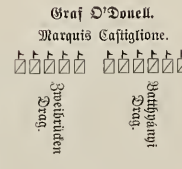 Graf O'Donell.
Marquis Castiglione.
Zweibrücken
Drag.
Batthyányi
Drag.